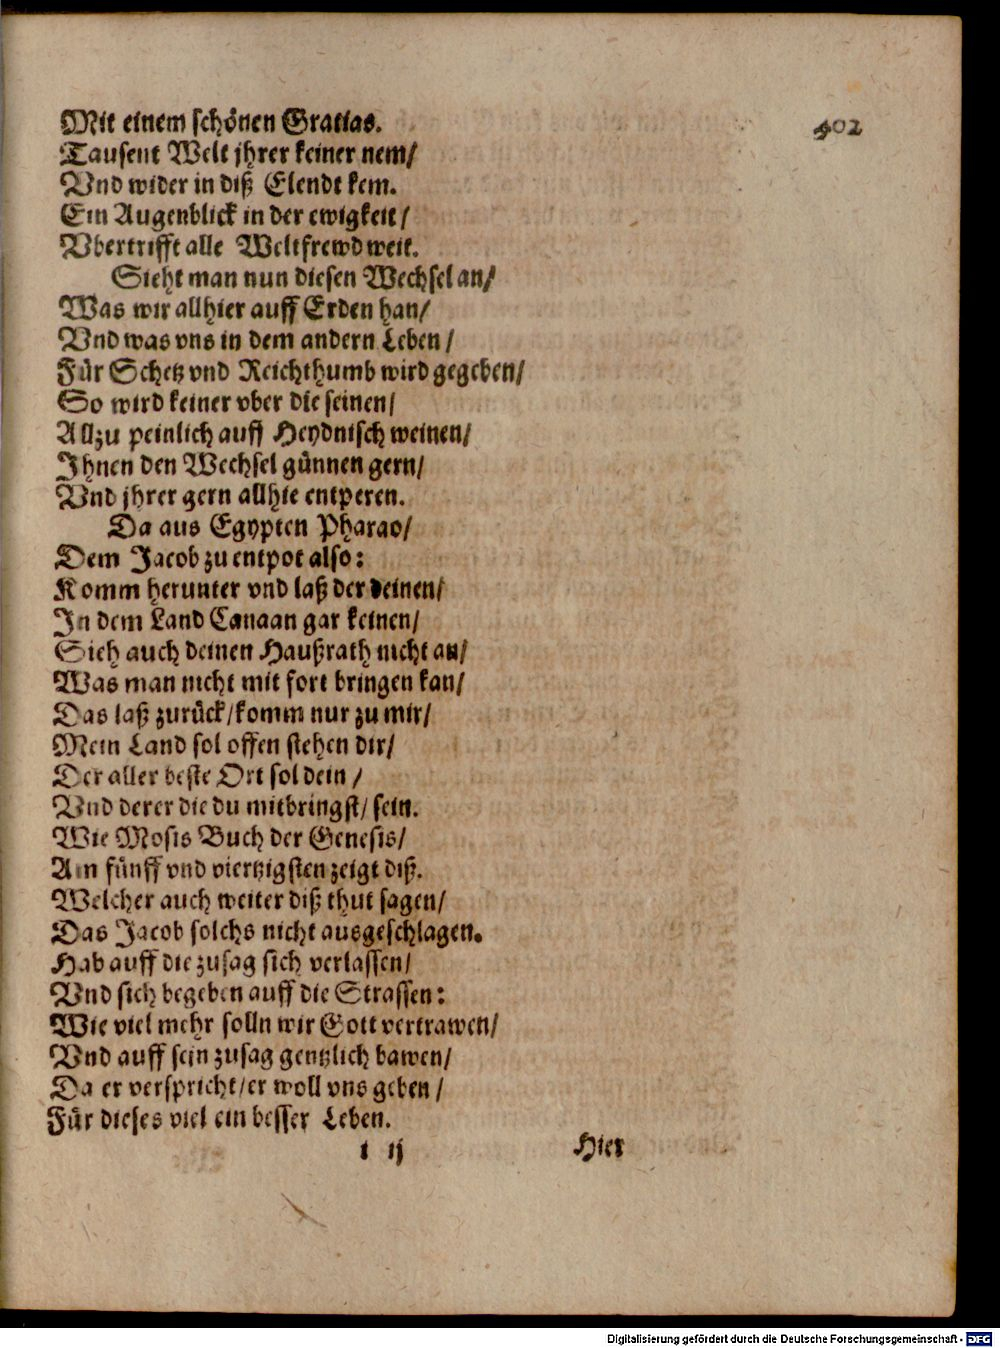 Mit einem schönen Gratias.
402
Tausent Welt jhrer keiner nem/
Vnd wider in diß Elendt kem.
Ein Augenblick in der ewigkeit/
Vbertrifft alle Weltfrewd weit.
Sieht man nun diesen Wechsel an/
Was wir allhier auff Erden han/
Vnd was vns in dem andern Leben/
Für Schetz vnd Reichthumb wird gegeben/
So wird keiner vber die seinen/
Allzu peinlich auff Heydnisch weinen/
Ihnen den Wechsel günnen gern/
Vnd jhrer gern allhie entperen.
Da aus Egypten Pharao/
Dem Jacob zu entpot also:
Komm herunter vnd laß der deinen/
In dem Land Canaan gar keinen/
Sieh auch deinen Haußrath nicht an/
Was man nicht mit fort bringen kan/
Das laß zurück/komm nur zu mir/
Mein Land sol offen stehen dir/
Der aller beste Ort sol dein/
Vnd derer die du mitbringst/ sein.
Wie Mosis Buch der Genesis/
Am fünff vnd viertzigsten zeigt diß.
Welcher auch weiter diß thut sagen/
Das Jacob solchs nicht ausgeschlagen.
Hab auff die zusag sich verlassen/
Vnd sich begeben auff die Strassen:
Wie viel mehr solln wir Gott vertrawen/
Vnd auff sein zusag gentzlich bawen/
Da er verspricht/er woll vns geben/
Für dieses viel ein besser Leben.
i ij Hier
Digitalisierung gefördert durch die Deutsche Forschungsgemeinschaft - DFG